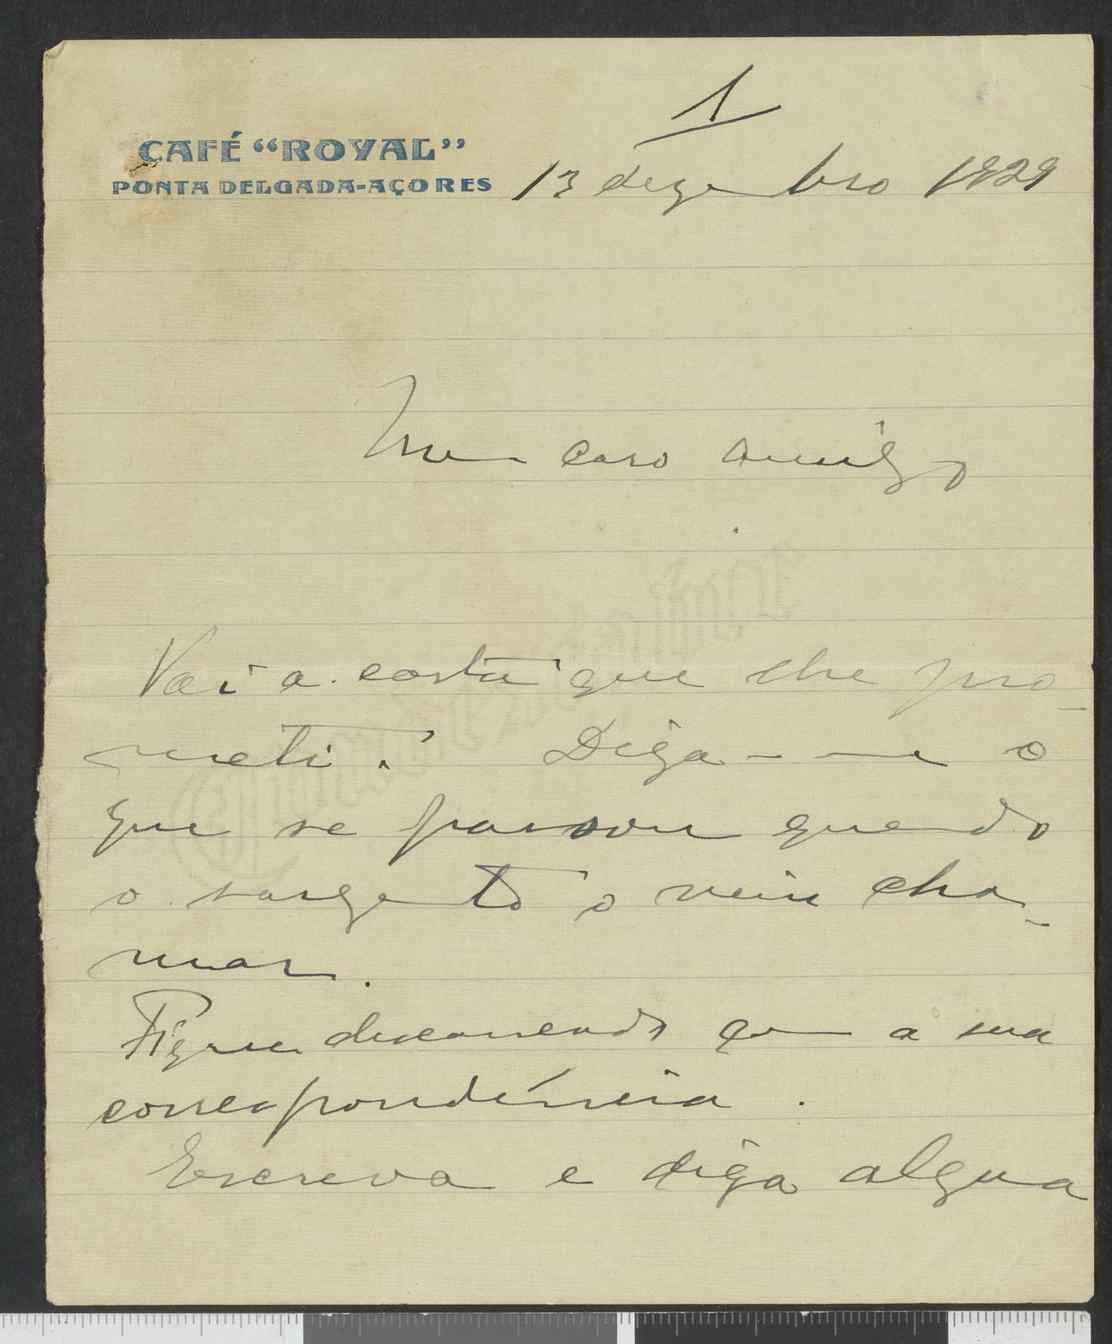 1
CAFÉ “ROYAL”
PONTA DELGADA-AÇORES
13 dezembro 1929
Meu caro amigo
Vai a carta que lhe pro-
meti. Diga-me o
que se passou quando
o sargento o veiu cha-
mar.
Fique descansado com a sua
correspondência.
Escreva e diga algua